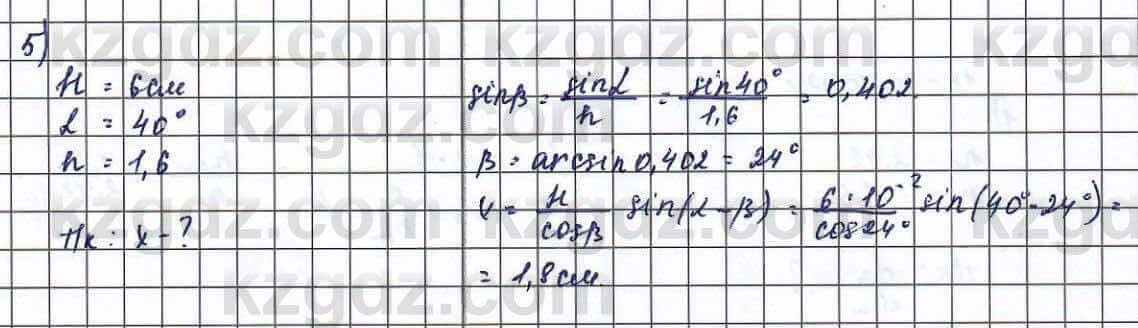 5)
H = 6см
α = 40°
n = 1,6
Тк: x - ?
sinβ = sinα / n = sin40° / 1,6 = 0,402.
β = arcsin0,402 = 24°
x = H / cosβ sin(α-β) = 6·10⁻² / cos24° sin(40°-24°) =
= 1,8см.
kzgdz.com kzgdz.com kzgdz.com
kzgdz.com kzgdz.com
kzgdz.com kzgdz.com kzgdz.com
kzgdz.com kzgdz.com